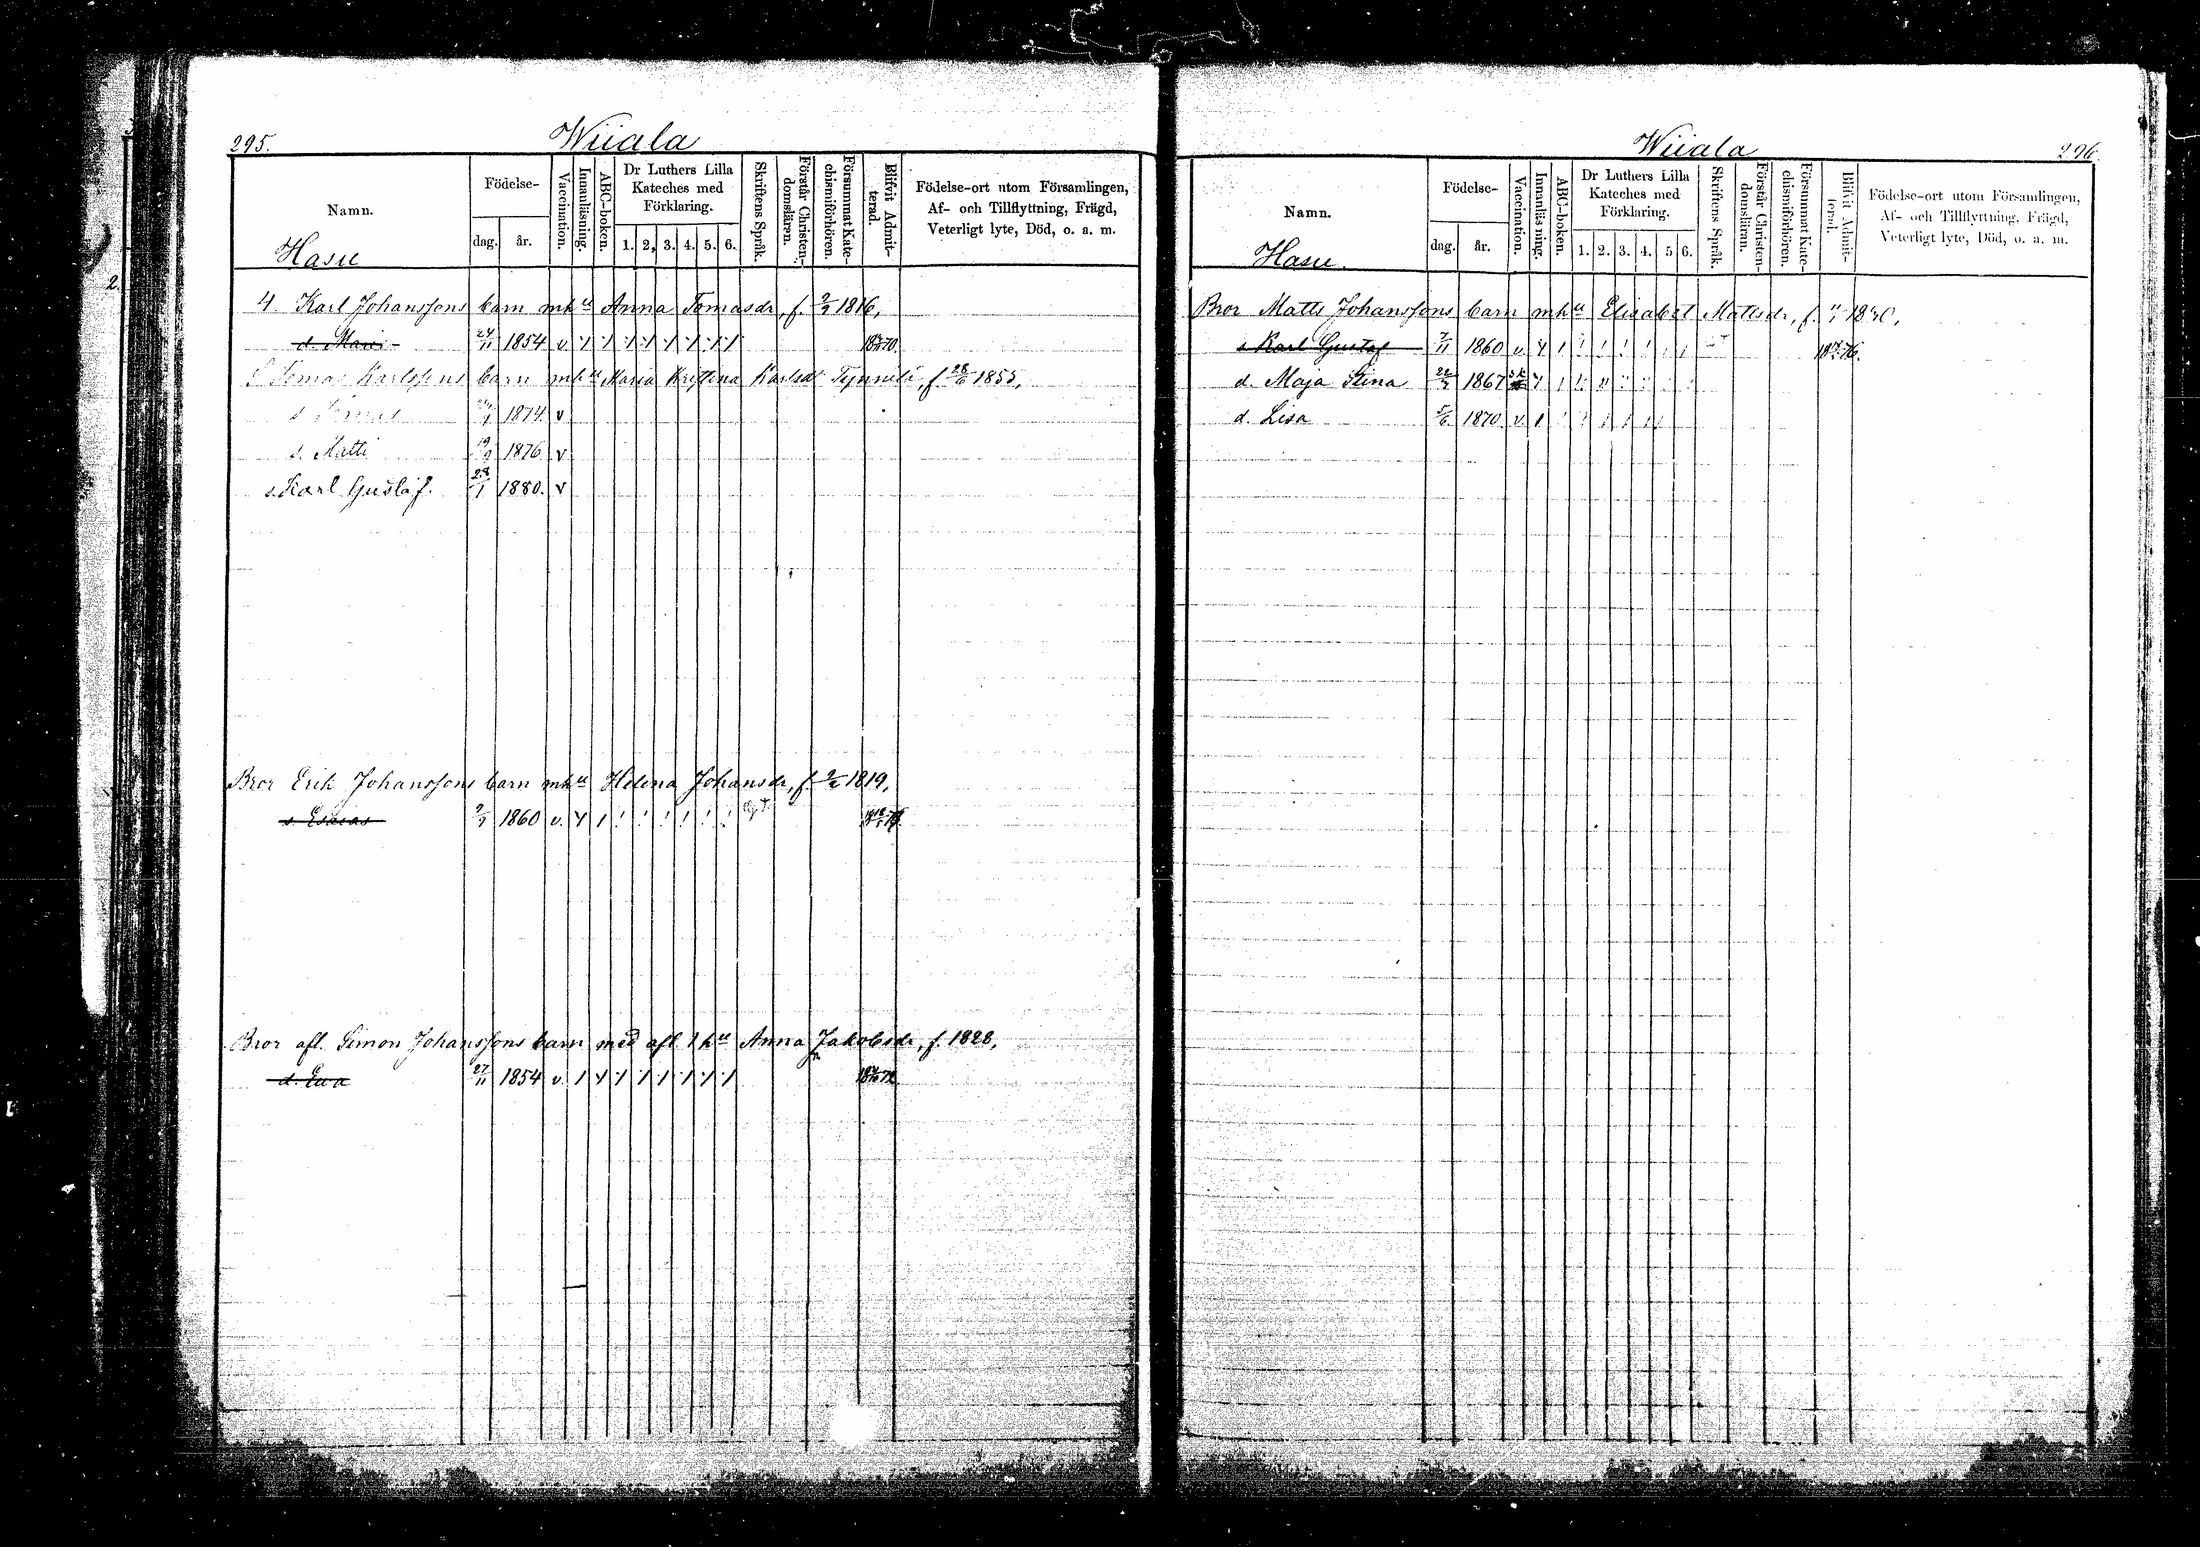 295.
Wiiala
Namn.
Födelse-
dag.
år.
Vaccination.
Innanläsning.
ABC-boken.
Dr Luthers Lilla
Kateches med
Förklaring.
1. 2, 3. 4. 5. 6.
Skriftens Språk.
Förstår Christen-
domsläran.
Försummat Kate-
chismiförhören.
Blifvit Admit-
terad.
Födelse-ort utom Församlingen,
Af- och Tillflyttning, Frägd,
Veterligt lyte, Död, o. a. m.
Hasu
4. Karl Johanssons barn m h u Anna Tomasdr, f. 9/2 1816,
d. Maria 24/11 1854 v.
Tomas Karlssons barn m h u Maria Kristina Karlsdr, f 28/6 1855,
s. Tomas 1874 v
s. Matti 19/9 1876 v
s. Karl Gustaf. 28/1 1880. v
Bror Erik Johanssons barn m h u Helena Johansdr, f. 1819,
s. Esaias 1860 v.
Bror afl. Simon Johanssons barn med afl. 1 hu Anna Jakobsdr, f. 1828,
d. Eva 27/11 1854 v.
Wiiala
296.
Namn.
Födelse-
dag.
år.
Vaccination.
Innanläsning.
ABC-boken.
Dr Luthers Lilla
Kateches med
Förklaring.
1. 2. 3. 4. 5 6.
Skriftens Språk.
Förstår Christen-
domsläran.
Försummat Kate-
chismiförhören.
Blifvit Admit-
terad.
Födelse-ort utom Församlingen,
Af- och Tillflyttning, Frägd,
Veterligt lyte, Död, o. a. m.
Hasu.
Bror Matts Johanssons barn m h u Elisabet Mattsdr, f.
s. Karl Gustaf 7/11 1860 v.
d. Maja Stina 1867
d. Lisa 5/6 1870 v.